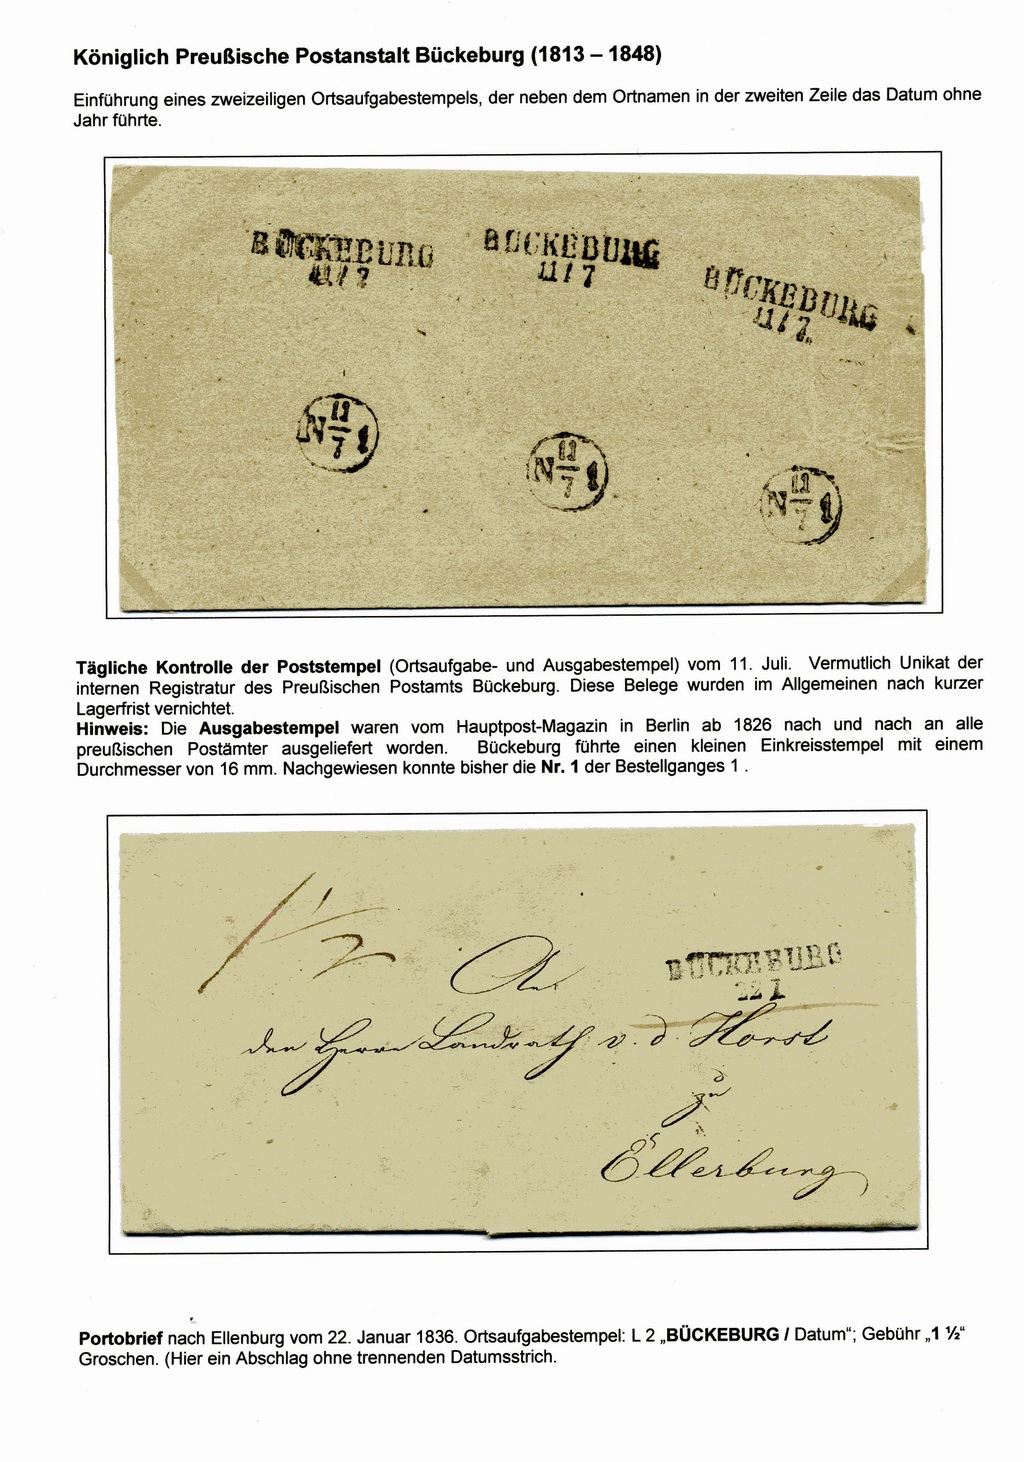 Königlich Preußische Postanstalt Bückeburg (1813 – 1848)
Einführung eines zweizeiligen Ortsaufgabestempels, der neben dem Ortnamen in der zweiten Zeile das Datum ohne
Jahr führte.
BÜCKEBURG
11/7
BÜCKEBURG
11/7
BÜCKEBURG
11/7
N 11/7 1
N 11/7 1
N 11/7 1
Tägliche Kontrolle der Poststempel (Ortsaufgabe- und Ausgabestempel) vom 11. Juli. Vermutlich Unikat der
internen Registratur des Preußischen Postamts Bückeburg. Diese Belege wurden im Allgemeinen nach kurzer
Lagerfrist vernichtet.
Hinweis: Die Ausgabestempel waren vom Hauptpost-Magazin in Berlin ab 1826 nach und nach an alle
preußischen Postämter ausgeliefert worden. Bückeburg führte einen kleinen Einkreisstempel mit einem
Durchmesser von 16 mm. Nachgewiesen konnte bisher die Nr. 1 der Bestellganges 1 .
1 1/2
An
BÜCKEBURG
22 1
den Herrn Landrath v. d. Horst
zu
Ellerburg
Portobrief nach Ellenburg vom 22. Januar 1836. Ortsaufgabestempel: L 2 „BÜCKEBURG / Datum“; Gebühr „1 ½“
Groschen. (Hier ein Abschlag ohne trennenden Datumsstrich.